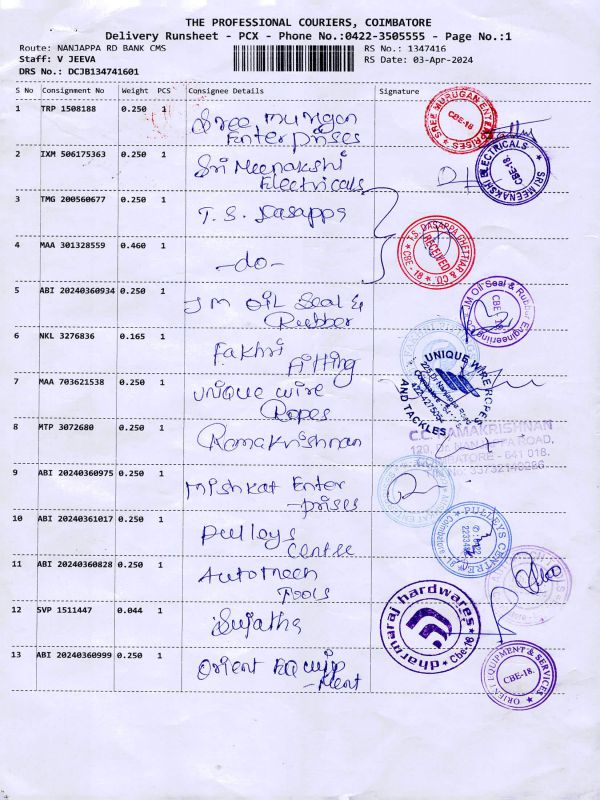 THE PROFESSIONAL COURIERS, COIMBATORE
Delivery Runsheet - PCX - Phone No.:0422-3505555 - Page No.:1
Route: NANJAPPA RD BANK CMS RS No.: 1347416
Staff: V JEEVA RS Date: 03-Apr-2024
DRS No.: DCJB134741601
S No Consignment No Weight PCS Consignee Details Signature
1 TRP 1508188 0.250 1 Sree Murugan
Enterprises
SREE MURUGAN ENTERPRISES CBE-18
2 IXM 506175363 0.250 1 Sri Meenakshi
Electricals
SRI MEENAKSHI ELECTRICALS CBE-18
3 TMG 200560677 0.250 1 T. S. Dasappa
4 MAA 301328559 0.460 1 -do-
T.S. DASAPPA CHETTIAR & CO. RECEIVED CBE - 18
5 ABI 20240360934 0.250 1 JM OIL Seal &
Rubber
JM Oil Seal & Rubber Engineering Co. CBE-18
6 NKL 3276836 0.165 1 Fakhri
Fitting
7 MAA 703621538 0.250 1 UNIQUE Wire
Ropes
UNIQUE WIRE ROPES
AND TACKLES
8 MTP 3072680 0.250 1 Ramakrishnan
C.C. RAMAKRISHNAN
641 018.
9 ABI 20240360975 0.250 1 Mishkat Enter
-prises
10 ABI 20240361017 0.250 1 Pulleys
Centre
PULLEYS CENTRE
11 ABI 20240360828 0.250 1 Autotech
Tools
12 SVP 1511447 0.044 1 Sujatha
dharmaraj hardwares Cbe-16
13 ABI 20240360999 0.250 1 Orient Equip
-ment
ORIENT EQUIPMENT & SERVICES CBE-18.